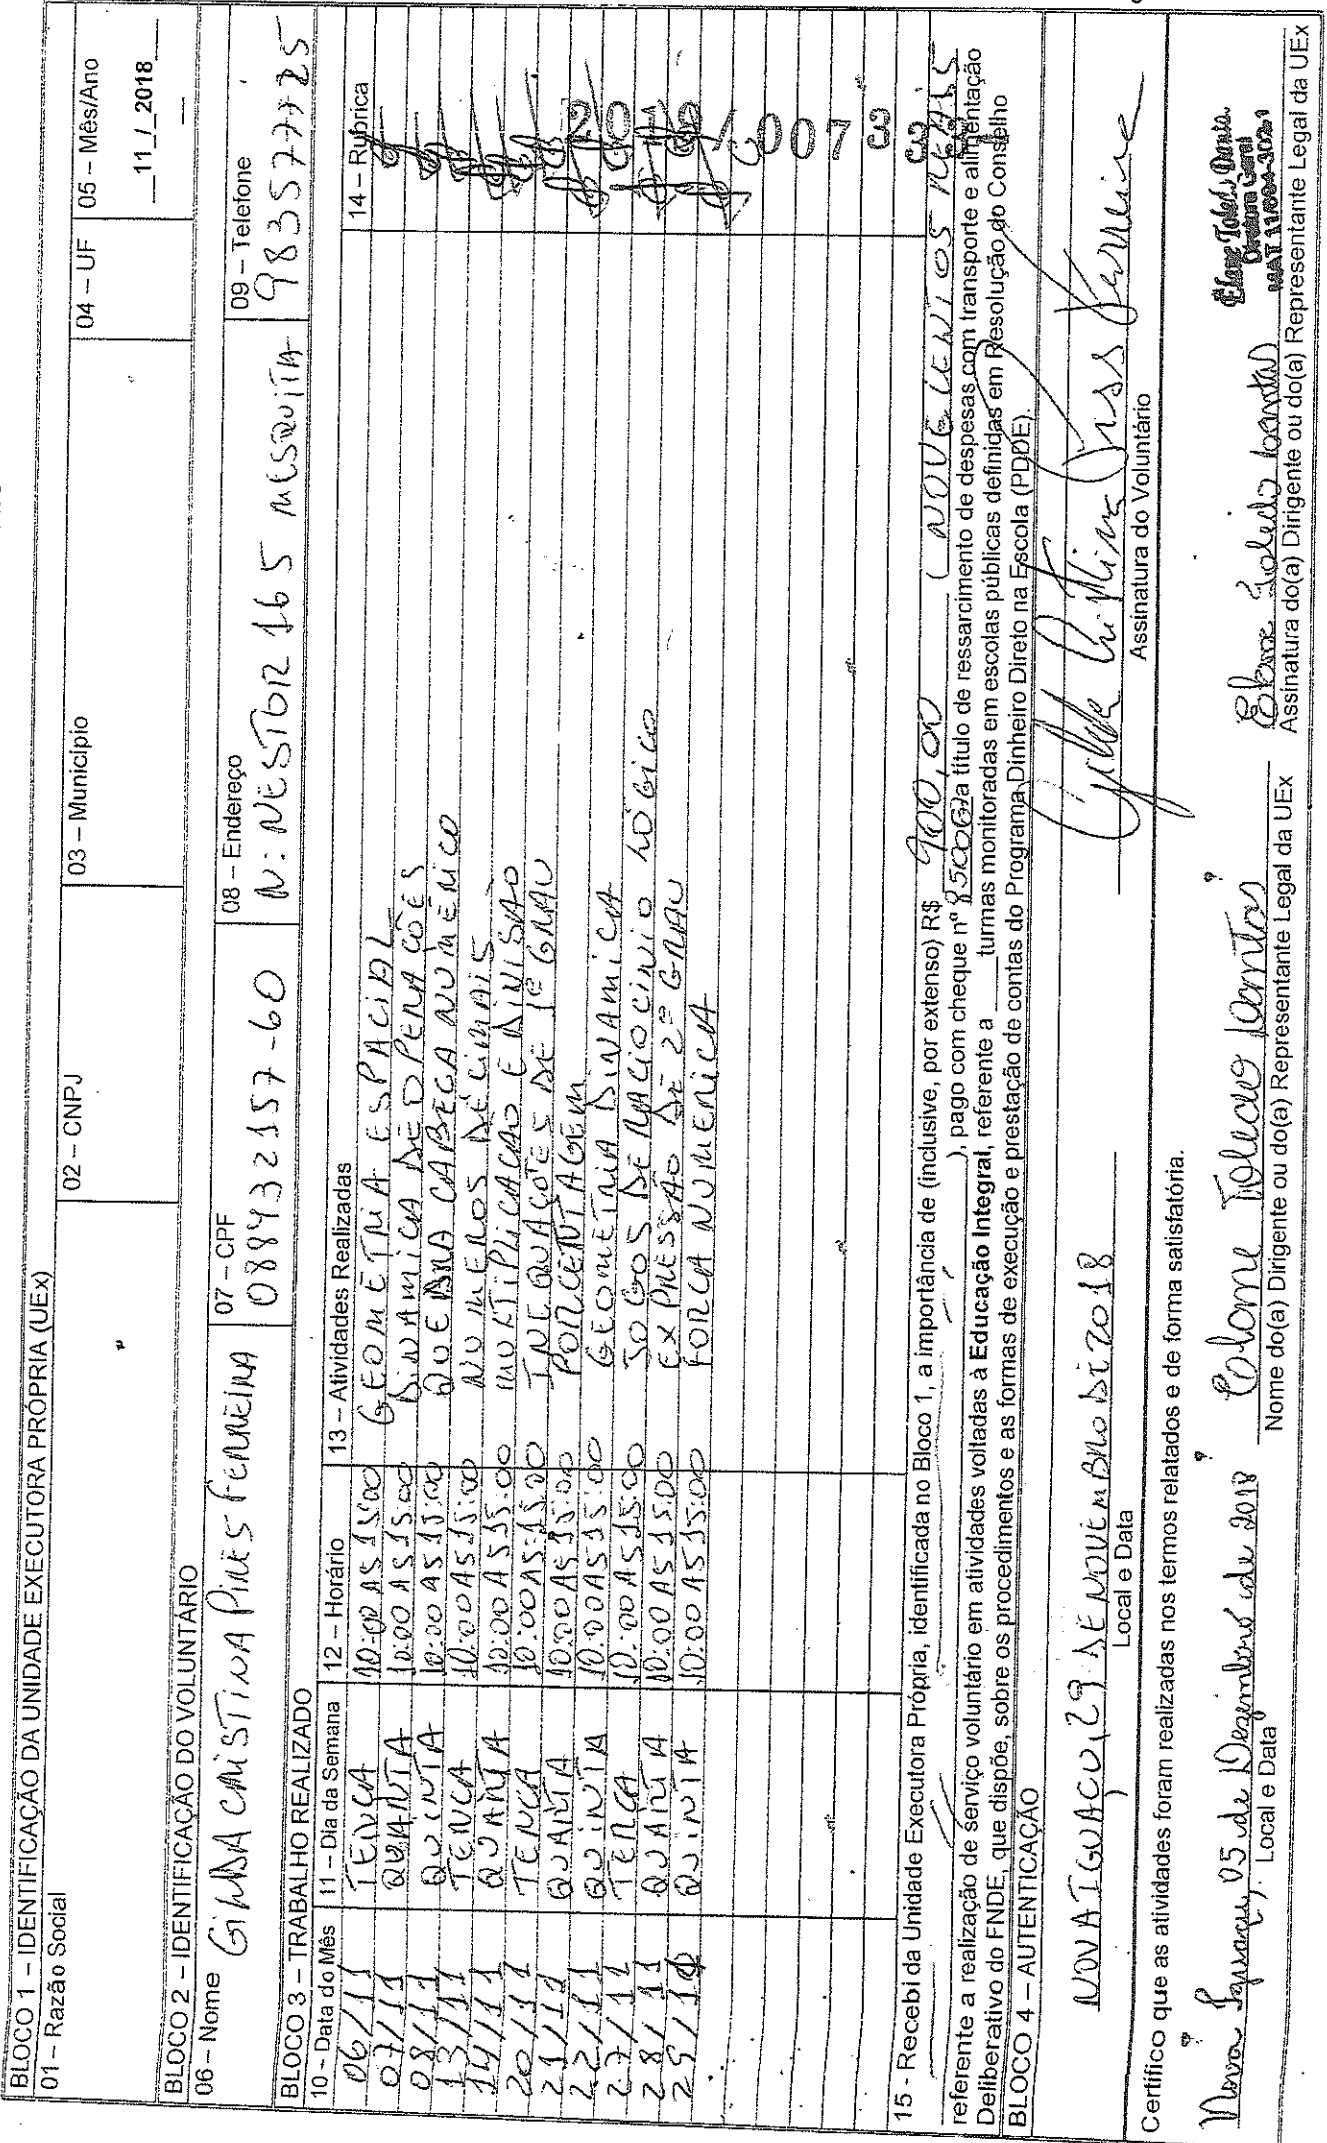 BLOCO 1 – IDENTIFICAÇÃO DA UNIDADE EXECUTORA PRÓPRIA (UEx)
01 – Razão Social
02 – CNPJ
03 – Município
04 – UF
05 – Mês/Ano
__11_/_2018__
BLOCO 2 – IDENTIFICAÇÃO DO VOLUNTÁRIO
06 – Nome
GILDA CRISTINA PIRES FERREIRA
07 – CPF
088432157-60
08 – Endereço
N: NESTOR 165 MESQUITA
09 – Telefone
983577725
BLOCO 3 – TRABALHO REALIZADO
10 - Data do Mês 11 – Dia da Semana 12 – Horário 13 – Atividades Realizadas 14 – Rubrica
06/11 TERÇA 10:00 AS 15:00 GEOMETRIA ESPACIAL
07/11 QUARTA 10:00 AS 15:00 DINAMICA DE OPERAÇÕES
08/11 QUINTA 10:00 AS 15:00 QUEBRA CABEÇA NUMÉRICO
13/11 TERCA 10:00 AS 15:00 NUMEROS DÉCIMAIS
14/11 QUARTA 10:00 AS 15:00 MULTIPLICAÇÃO E DIVISAO
20/11 TERCA 10:00 AS 15:00 INEQUAÇÕES DE 1º GRAU
21/11 QUARTA 10:00 AS 15:00 PORCENTAGEM
22/11 QUINTA 10:00 AS 15:00 GEOMETRIA DINAMICA
27/11 TERCA 10:00 AS 15:00 JOGOS DE RACIOCINIO LÓGICO
28/11 QUARTA 10:00 AS 15:00 EXPRESSÃO DE 2º GRAU
29/11 QUINTA 10:00 AS 15:00 FORCA NUMERICA
15 - Recebi da Unidade Executora Própria, identificada no Bloco 1, a importância de (inclusive, por extenso) R$ 900,00 (NOVECENTOS REAIS
), pago com cheque nº 850061 a título de ressarcimento de despesas com transporte e alimentação
referente a realização de serviço voluntário em atividades voltadas à Educação Integral, referente a ___ turmas monitoradas em escolas públicas definidas em Resolução do Conselho
Deliberativo do FNDE, que dispõe, sobre os procedimentos e as formas de execução e prestação de contas do Programa Dinheiro Direto na Escola (PDDE).
BLOCO 4 – AUTENTICAÇÃO
NOVA IGUACU, 29 DE NOVEMBRO DE 2018
Gilda Cristina Pires Ferreira
Local e Data
Assinatura do Voluntário
Certifico que as atividades foram realizadas nos termos relatados e de forma satisfatória.
Elane Toledo Dantas
Diretora Geral
MAT 11/694.302-1
Nova Iguaçu, 05 de Dezembro de 2018
Elane Toledo Dantas
Elane Toledo Dantas
Local e Data
Nome do(a) Dirigente ou do(a) Representante Legal da UEx
Assinatura do(a) Dirigente ou do(a) Representante Legal da UEx